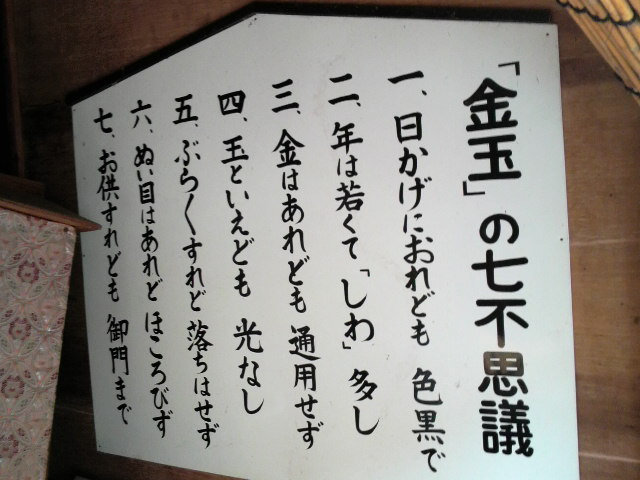 「金玉」の七不思議
一、日かげにおれども 色黒で
二、年は若くて「しわ」多し
三、金はあれども 通用せず
四、玉といえども 光なし
五、ぶら〱すれど 落ちはせず
六、ぬい目はあれど ほころびず
七、お供すれども 御門まで